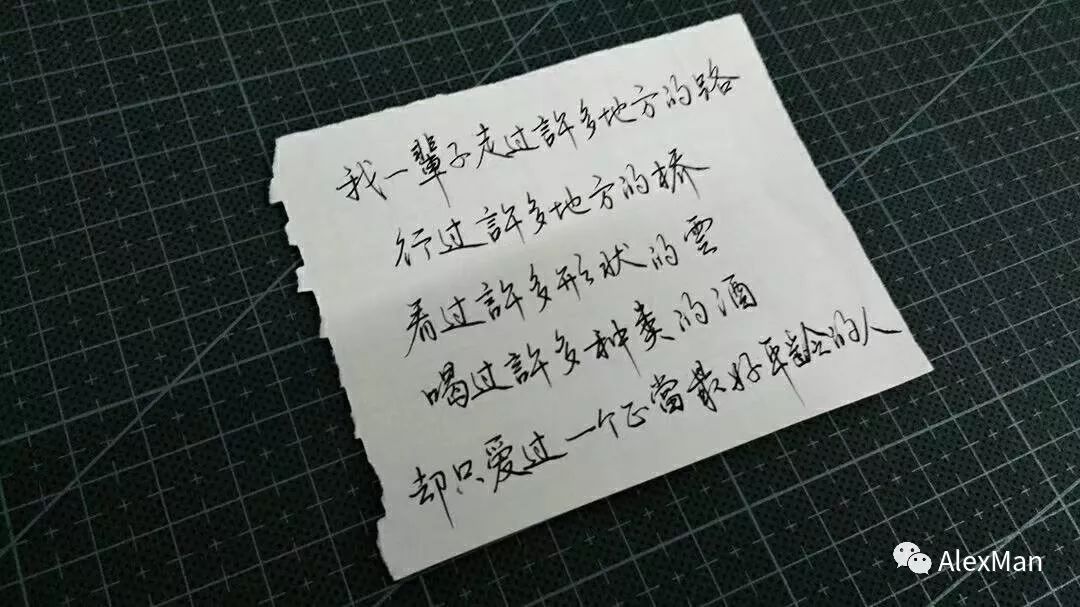 我一輩子走过許多地方的路
行过許多地方的桥
看过許多形状的雲
喝过許多种类的酒
却只爱过一个正當最好年齡的人
AlexMan